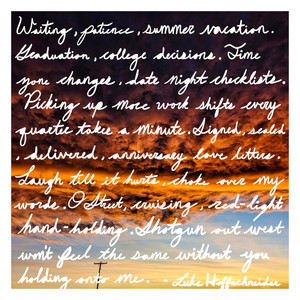 Waiting, patience, summer vacation.
Graduation, college decisions. Time
zone changes, date night checklists.
Picking up more work shifts every
quarter takes a minute. Signed, sealed
, delivered, anniversary love letters.
Laugh till it hurts, choke over my
words. O Street, cruising, red-light
hand-holding. Shotgun out west
won't feel the same without you
holding onto me. - Luke Hoffschneider